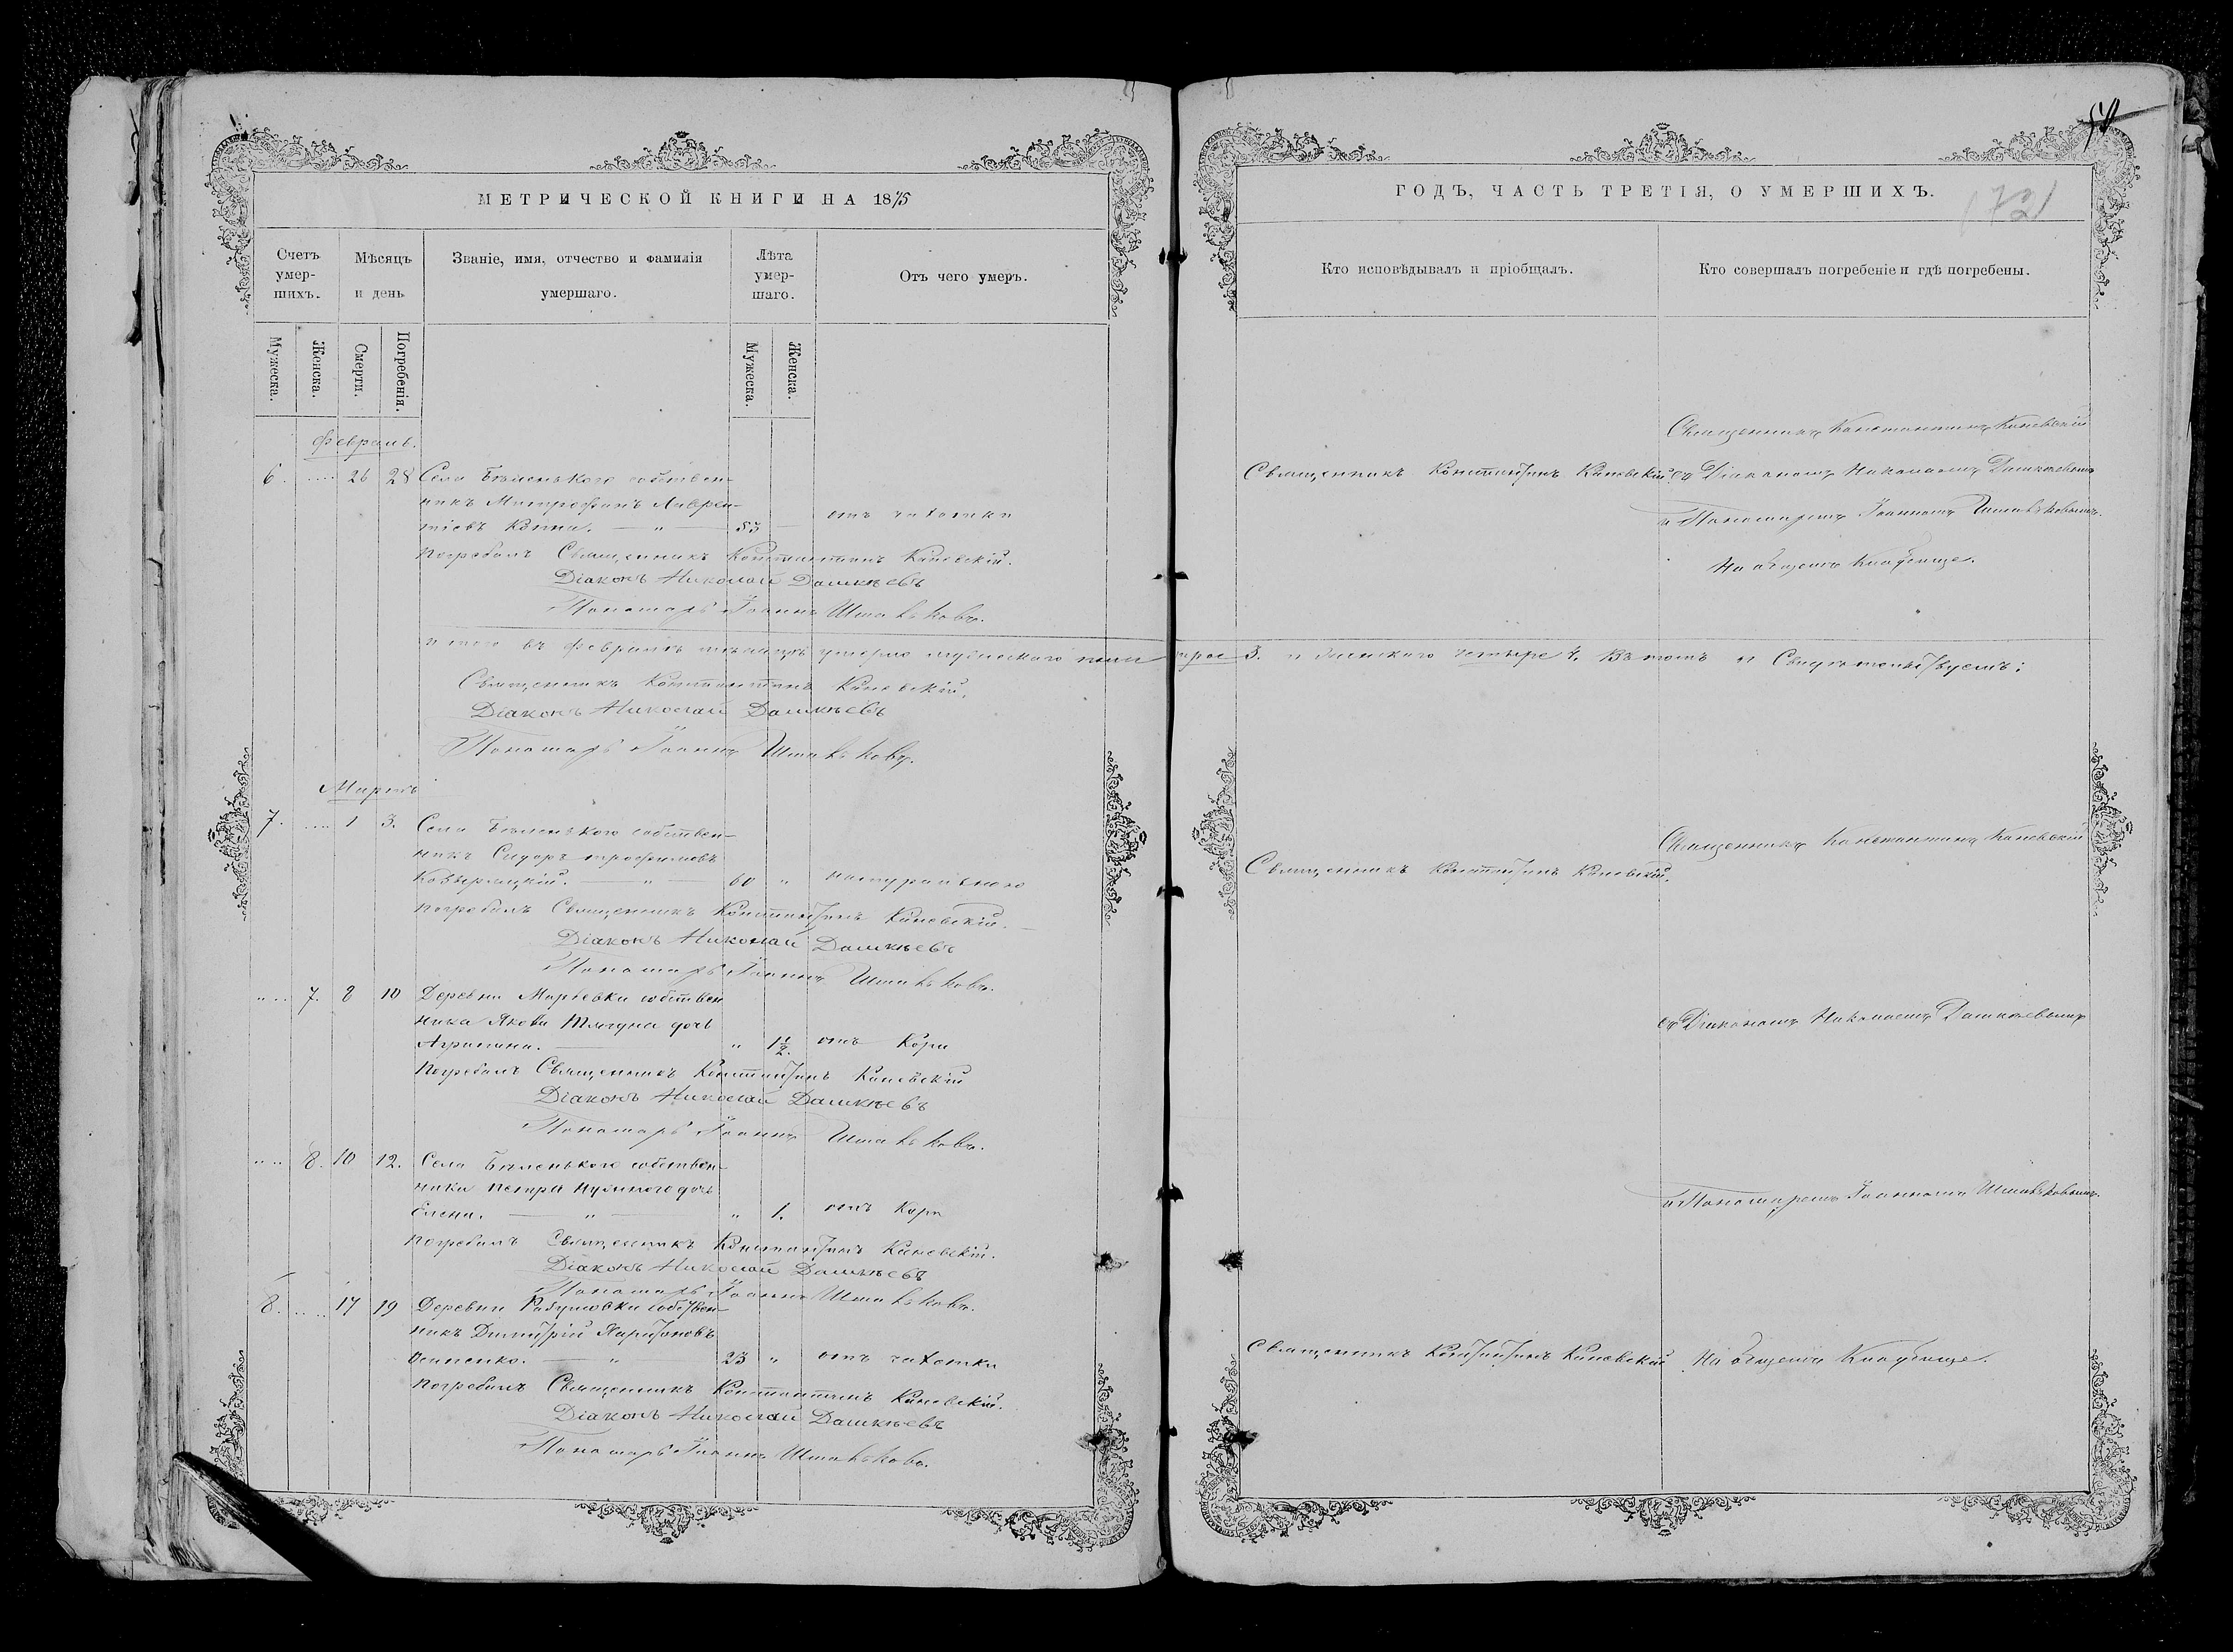 МЕТРИЧЕСКОЙ КНИГИ НА 1875
Счетъ умер-шихъ.
Мѣсяцъ и день
Званіе, имя, отчество и фамилія умершаго.
Лѣта умер-шаго.
Отъ чего умеръ.
Мужеска.
Женска.
Смерти.
Погребенія.
Мужеска.
Женска.
Февраль.
6. 26 28 Села Бѣленькаго собствен-
никъ Митрофанъ Лаврен-
тіевъ 53 отъ чахотки
погребалъ Священникъ Константинъ Каневскій.
Діаконъ Николай Дашкѣевъ
Пономарь Іоаннъ
итого въ Февралѣ мѣсяцѣ умерло мужескаго пола трое 3. и женскаго четыре 4. Въ томъ и Свидѣтельствуемъ:
Священникъ Константинъ Каневскій.
Діаконъ Николай Дашкѣевъ
Пономарь Іоаннъ
Мартъ
7. 1 3. Села Бѣленькаго собствен-
никъ Сидоръ трофимовъ
60 " натуральною
погребалъ Священникъ Константинъ Каневскій.
Діаконъ Николай Дашкѣевъ
Пономарь Іоаннъ
7. 8 10 Деревни Марьевки собствен
ника Якова дочь
Агрипина. " 1½. отъ Кори
Погребалъ Священникъ Константинъ Каневскій
Діаконъ Николай Дашкѣевъ
Пономарь Іоаннъ
8. 10 12. Села Бѣленькаго собствен-
ника Петра Нужнаго дочь
Елена. " " 1. отъ Кори
погребалъ Священникъ Константинъ Каневскій.
Діаконъ Николай Дашкѣевъ
Пономарь Іоаннъ
8. 17 19 Деревни Разумовки собствен-
никъ Димитрій Харитоновъ
Осипенко. " 23 " отъ чахотки
погребалъ Священникъ Константинъ Каневскій.
Діаконъ Николай Дашкѣевъ
Пономарь Іоаннъ
ГОДЪ, ЧАСТЬ ТРЕТІЯ, О УМЕРШИХЪ.
Кто исповѣдывалъ и пріобщалъ.
Кто совершалъ погребеніе и гдѣ погребены.
Священникъ Константинъ Каневскій
Священникъ Константинъ Каневскій. съ Діакономъ Николаемъ Дашкѣевымъ
и Пономаремъ Іоанномъ
На общемъ Кладбище.
Священникъ Константинъ Каневскій
Священникъ Константинъ Каневскій.
съ Діакономъ Николаемъ Дашкѣевымъ
и Пономаремъ Іоанномъ
Священникъ Константинъ Каневскій На общемъ Кладбище.